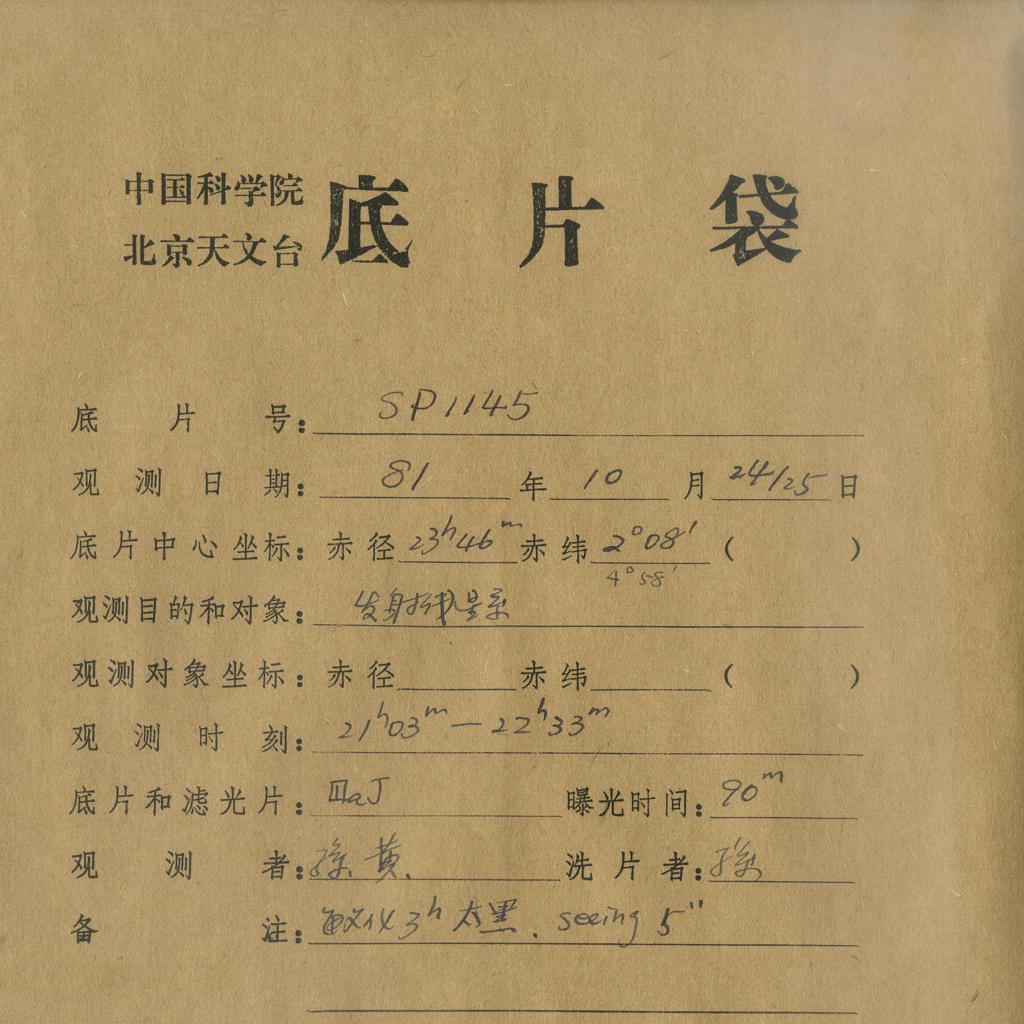 中国科学院
北京天文台
底片袋
底片号：SP1145
观测日期：81年10月24/25日
底片中心坐标：赤径23h46m赤纬2°08′（ ）
4°58′
观测目的和对象：发射线星系
观测对象坐标：赤径 赤纬 （ ）
观测时刻：21h03m—22h33m
底片和滤光片：ⅢaJ 曝光时间：90m
观测者：黄. 洗片者：
备注：3h 太黑. seeing 5″